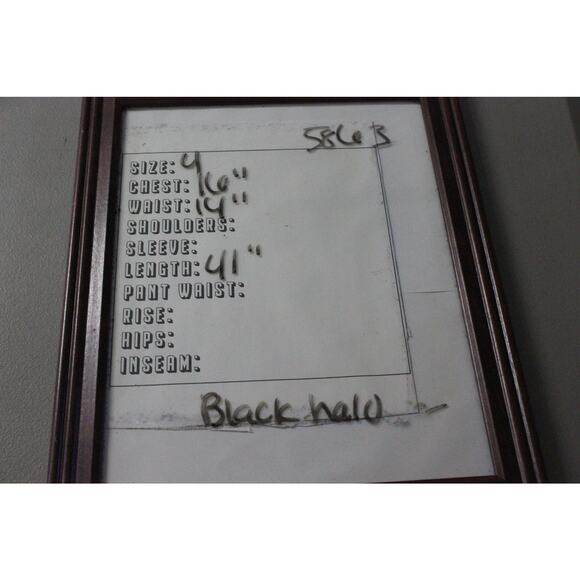 5863
SIZE: 4
CHEST: 16"
WAIST: 14"
SHOULDERS:
SLEEVE:
LENGTH: 41"
PANT WAIST:
RISE:
HIPS:
INSEAM:
Black halo